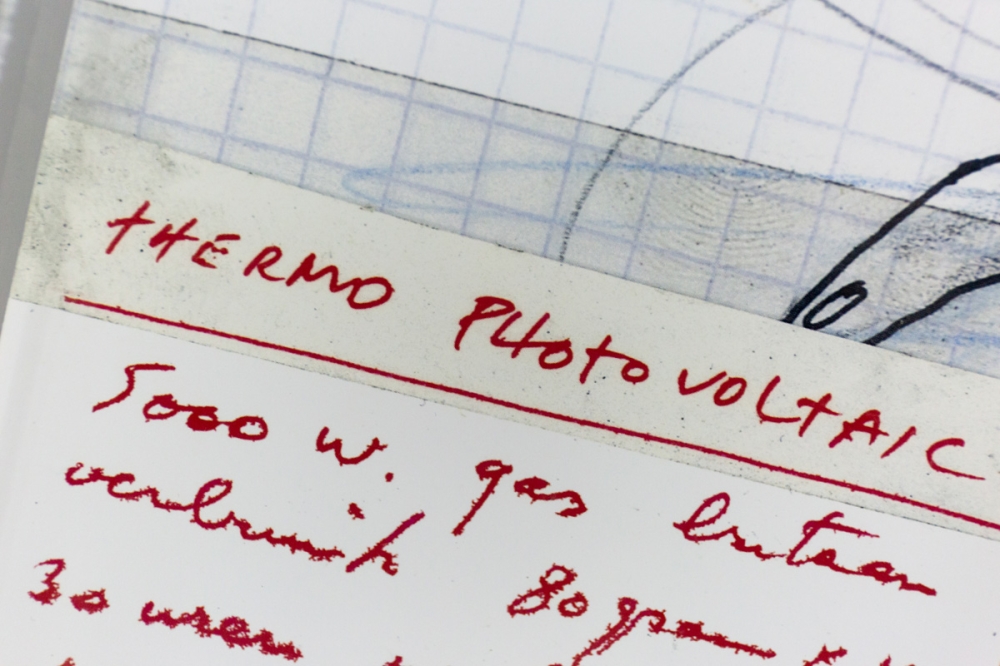 tHERMO PHOtOVOLTAIC
5000 W. gas butaan
verbruik 80 gram
30 uren